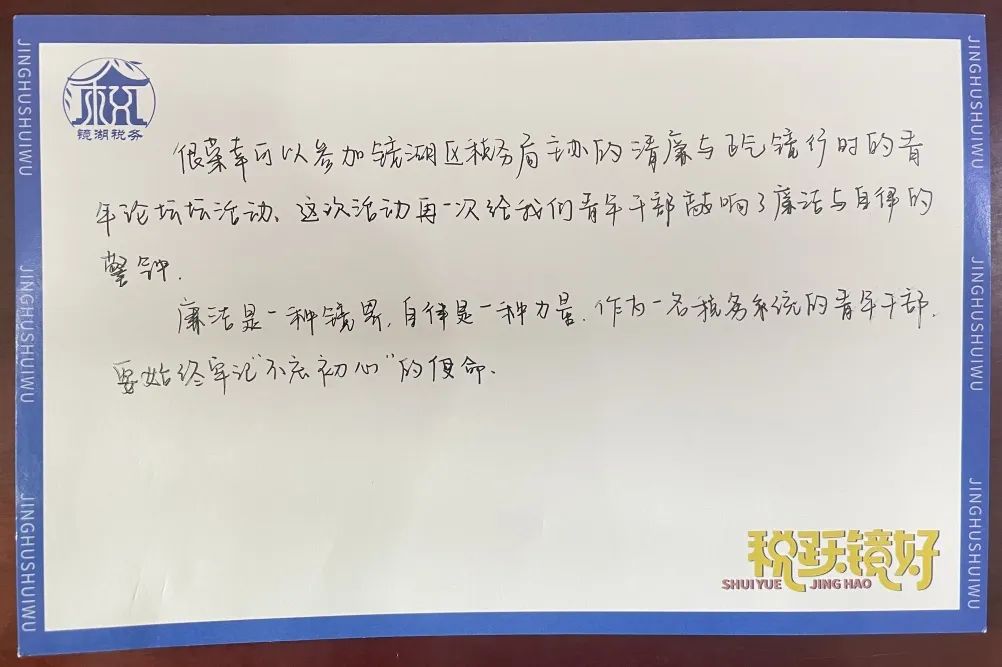 镜湖税务
JINGHUSHUIWU
JINGHUSHUIWU
JINGHUSHUIWU
很荣幸可以参加镜湖区税务局主办的清廉与正气镜行时的青
年论坛坛活动、这次活动再一次给我们青年干部敲响了廉洁与自律的
警钟.
廉洁是一种镜界,自律是一种力量,作为一名税务系统的青年干部,
要始终牢记"不忘初心"的使命.
JINGHUSHUIWU
JINGHUSHUIWU
JINGHUSHUIWU
税跃镜好
SHUI YUE JING HAO